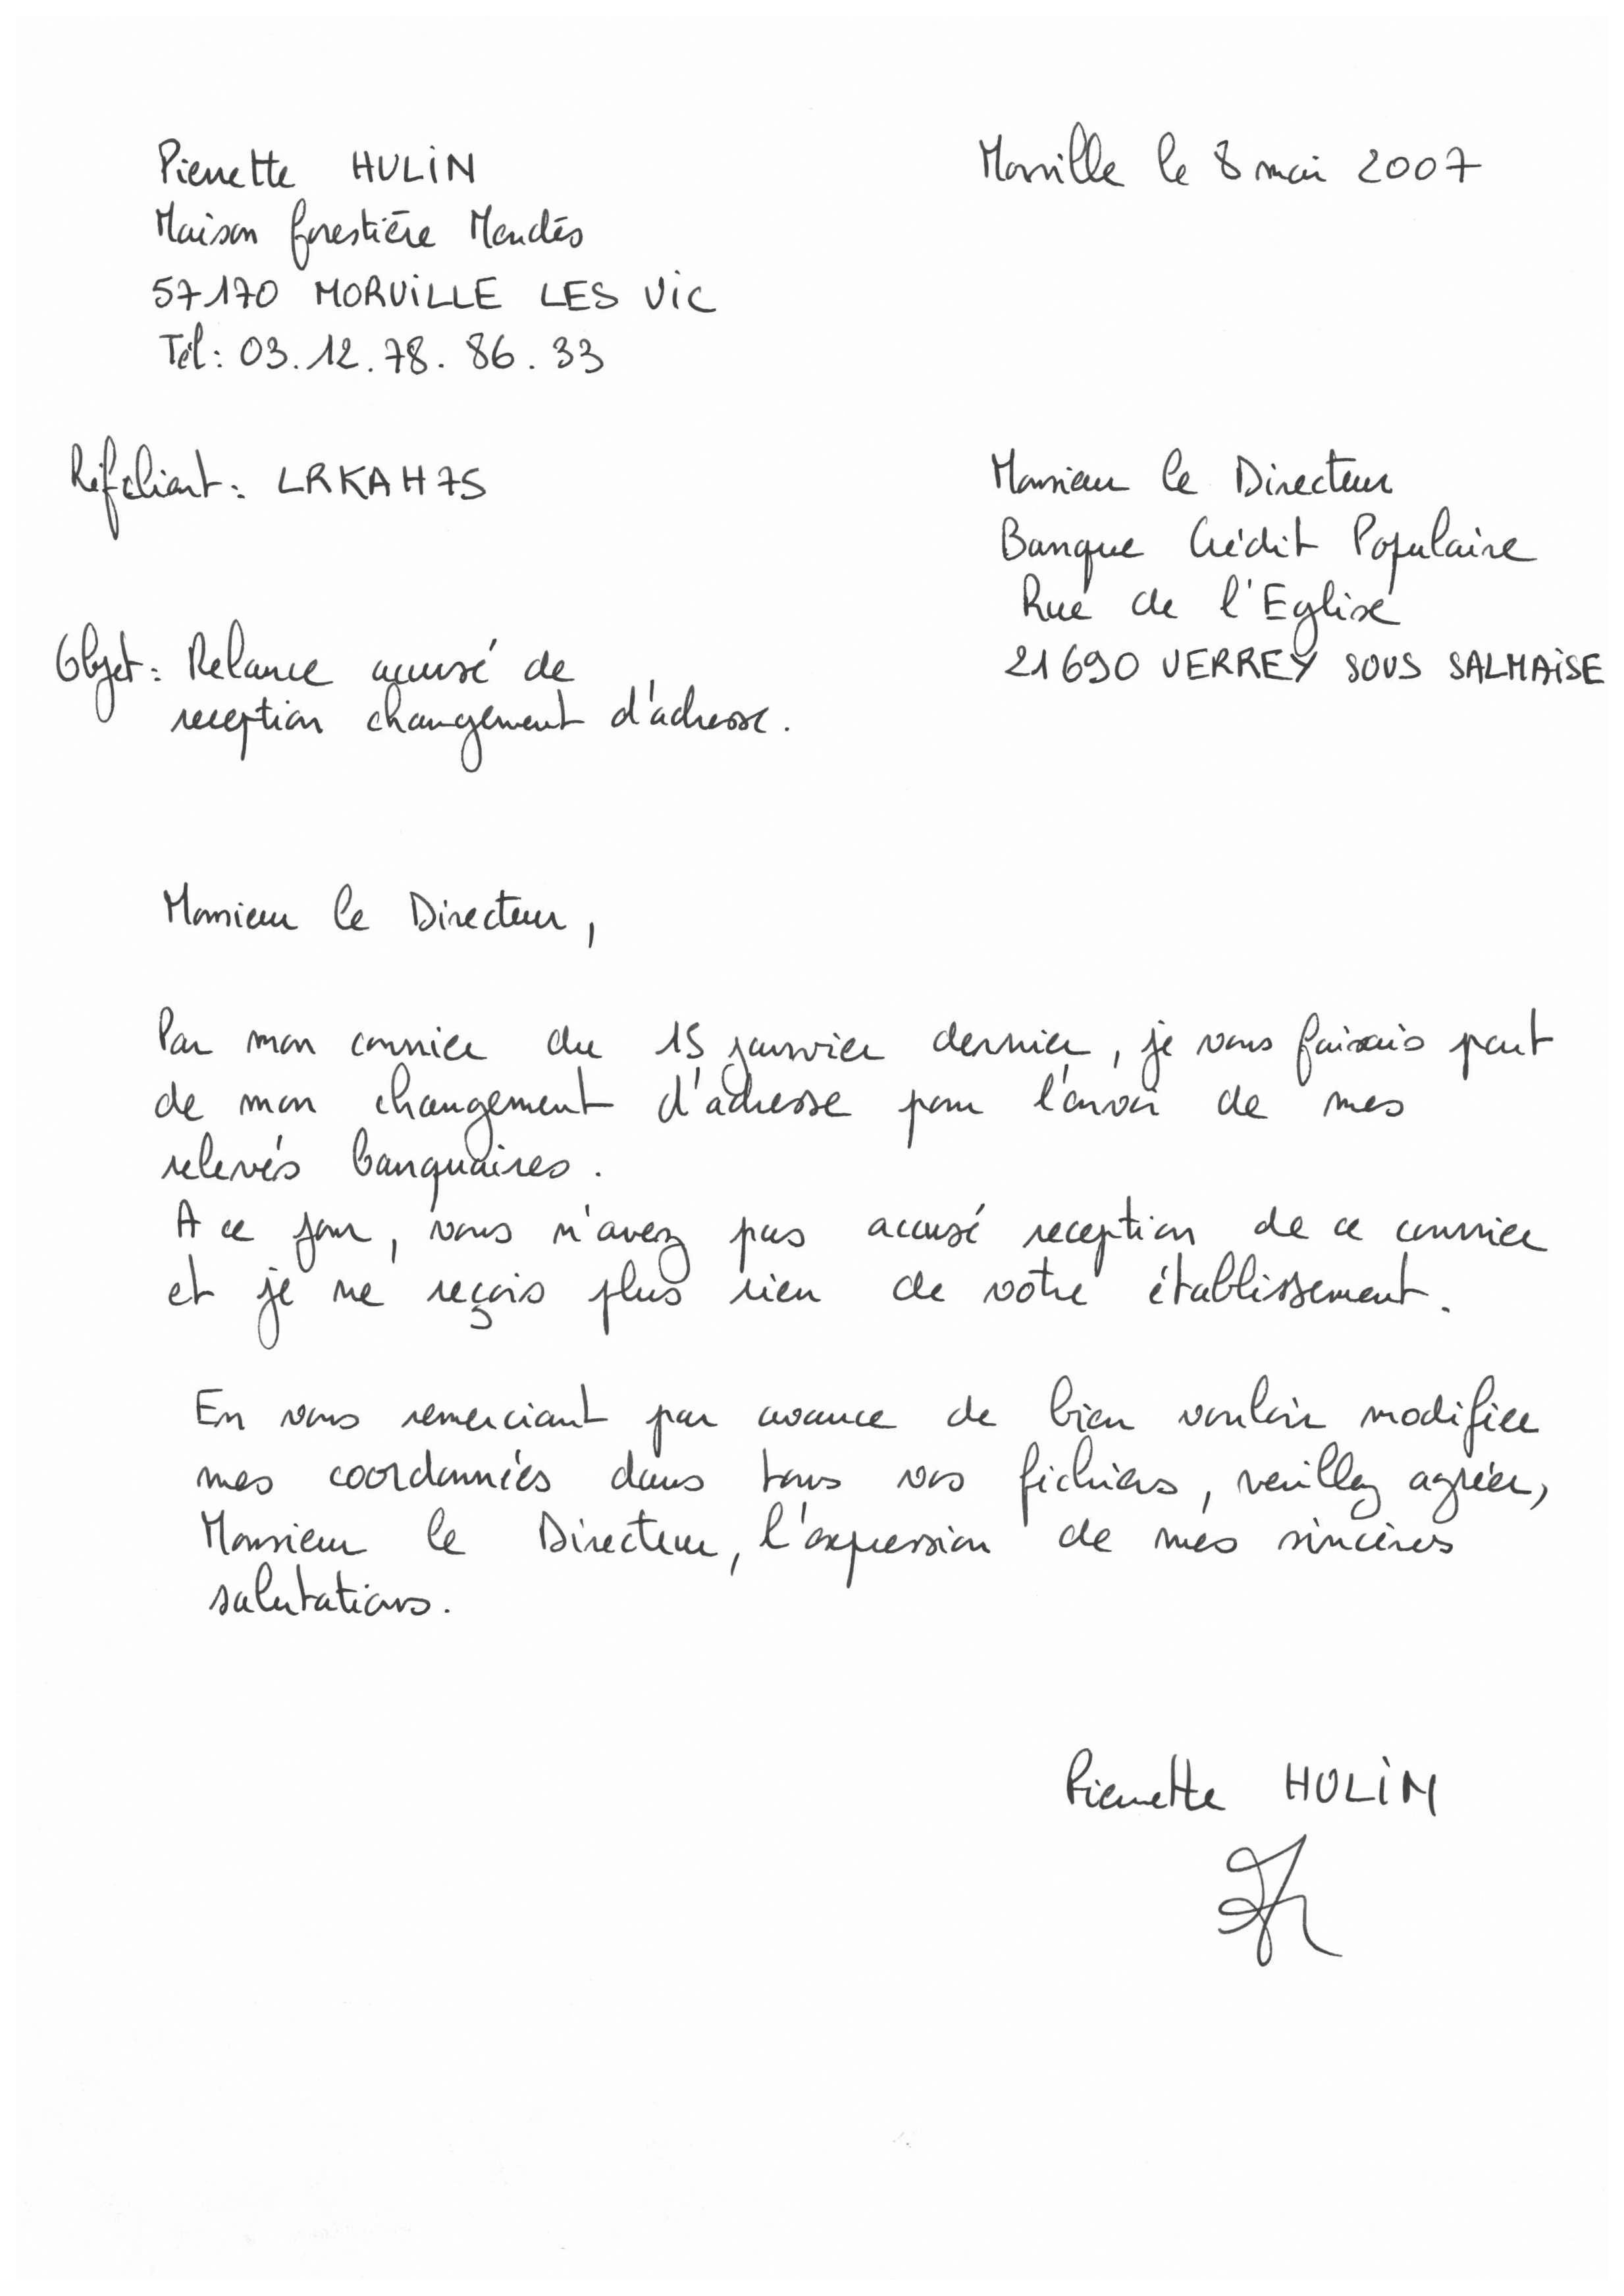 Pierrette HULIN
Morville le 8 mai 2007
Maison forestière Mendès
57170 MORVILLE LES VIC
Tél : 03.12.78.86.33
Réf client : LRKAH75
Monsieur le Directeur
Banque Crédit Populaire
Rue de l'Eglise
21690 VERREY SOUS SALMAISE
Objet : Relance accusé de
reception changement d'adresse.
Monsieur le Directeur,
Par mon courrier du 15 janvier dernier, je vous faisais part
de mon changement d'adresse pour l'envoi de mes
relevés banquaires.
A ce jour, vous n'avez pas accusé reception de ce courrier
et je ne reçois plus rien de votre établissement.
En vous remerciant par avance de bien vouloir modifier
mes coordonnées dans tous vos fichiers, veuillez agréer,
Monsieur le Directeur, l'expression de mes sincères
salutations.
Pierrette HULIN